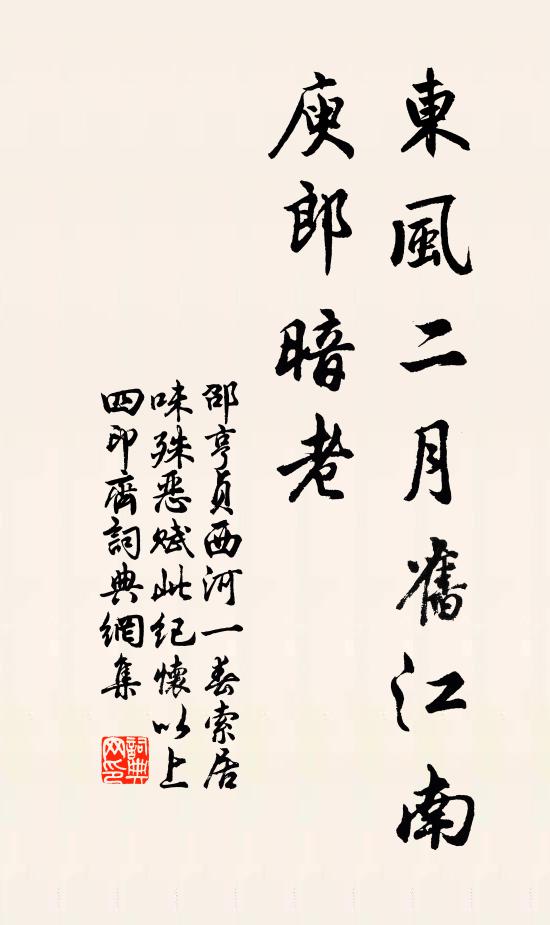 東風二月舊江南
庾郎暗老
邵亨貞西河一春索居
味殊惡賦此紀懷以上
四印齋詞典網集
詞典
网印